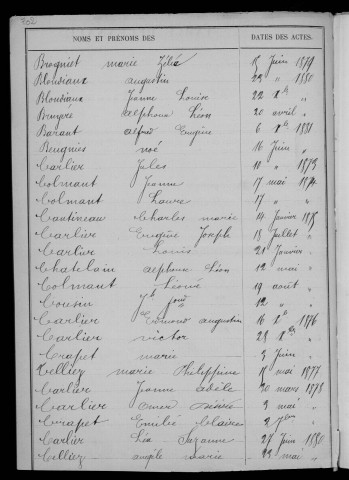 802
NOMS ET PRÉNOMS DES
DATES DES ACTES.
Brogniet marie Zélie 15 Juin 1879
Blondiaux augustin 23 " 1880
Blondiaux Jeanne Louise 22 Xbre "
Bruyère alphonse Léon 20 avril "
Barant alfred Eugène 6 Xbre 1881
Beugnies noé 16 Juin "
Carlier Jules 10 " 1873
Colmant Jeanne 17 mai 1874
Colmant Laure 17 " "
Cantineau Charles marie 14 Janvier 1875
Carlier Eugène Joseph 18 Juillet "
Carlier Louis 21 Janvier "
Chatelain alphonse Léon 12 mai "
Colmant Léonie 19 août "
Cousin Jh 12 " "
Carlier Edmond augustin 16 Xbre 1876
Carlier victor 28 Xbre "
Crapet marie 3 Juin "
Cellier marie Philippine 15 mai 1877
Carlier Jeanne adèle 30 mars 1878
Carlier Omer Désiré 3 mai "
Crapet Emilie Claire 2 7bre "
Carlier Léa Suzanne 27 Juin 1880
Cellier marie 22 mai "